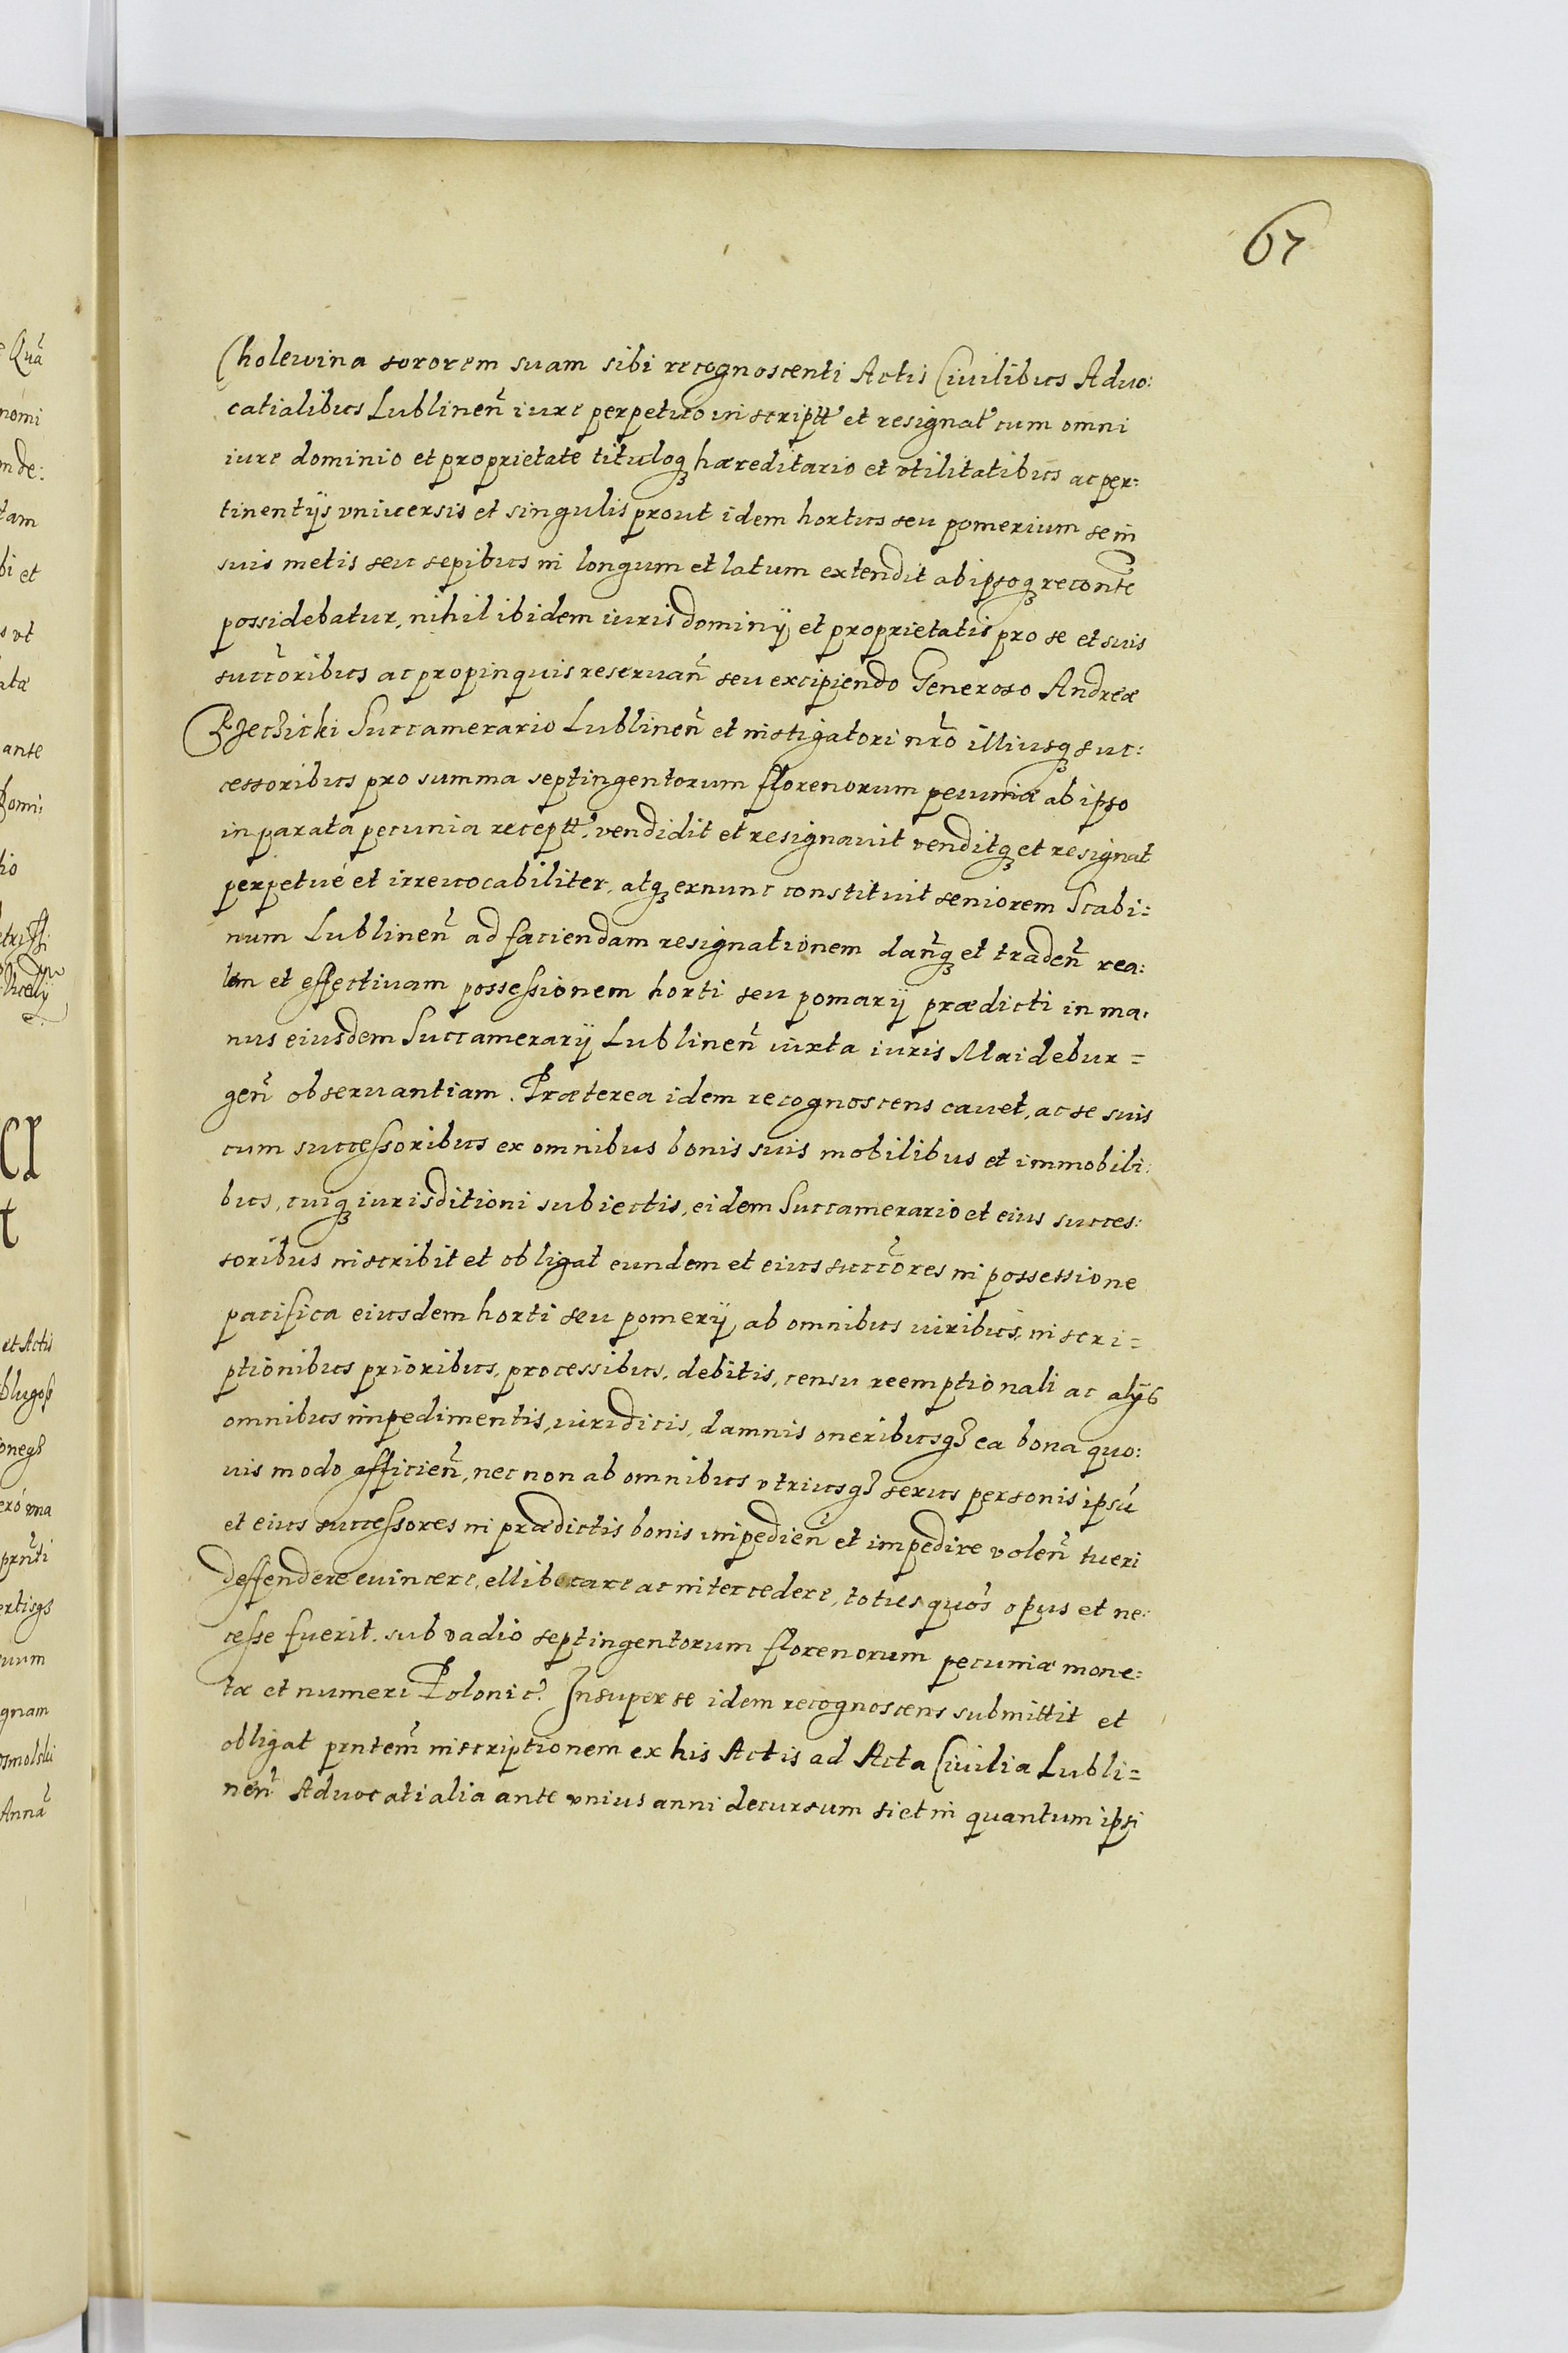 67
Cholewina sororem suam sibi recognoscenti Actis Ciuilibus Aduo:
catialibus Lublineñ iure perpetuo inscriptt̃ et resignat̃ cum omni
iure dominio et proprietate tituloq₃ hæreditario et vtilitatibus ac per:
tinentijs vniuersis et singulis prout idem hortus seu pomerium se in
suis metis seu sepibus in longum et latum extendit ab ipsoq₃ reconte͂
possidebatur, nihil ibidem iuris dominij et proprietatis pro se et suis
succõribus ac propinquis reseruañ seu excipiendo Generoso Andreæ
Rzeczicki Succamerario Lublineñ et instigatori nrõ illiusq₃ suc:
cessoribus pro summa septingentorum florenorum pecuniæ ab ipso
in parata pecunia receptt̃, vendidit et resignauit venditq₃ et resignat
perpetué et irreuocabiliter, atq₃ exnunc constituit seniorem Scabi=
num Lublineñ ad faciendam resignationem dañq₃ et tradeñ rea:
lem et effectiuam possessionem horti seu pomarij prædicti in ma:
nus eiusdem Succamerarij Lublineñ iuxta iuris Maidebur=
geñ obseruantiam. Præterea idem recognoscens cauet, ac se suis
cum successoribus ex omnibus bonis suis mobilibus et immobili:
bus, cuiq₃ iurisditioni subiectis, eidem Succamerario et eius succes:
soribus inscribit et obligat eundem et eius succõres in possessione
pacifica eiusdem horti seu pomerij ab omnibus iuribus, inscri=
ptionibus prioribus, processibus, debitis, censu reemptionali ac alijs
omnibus impedimentis, iuridicis, damnis oneribusq₃ ea bona quo:
uis modo afficieñ, nec non ab omnibus vtriusq₃ sexus personis ipsũ
et eius successores in prædictis bonis impedieñ et impedire voleñ tueri
deffendere euincere, elliberare ac intercedere, toties quo͂s opus et ne:
cesse fuerit. sub vadio septingentorum florenorum pecuniæ mone:
tæ et numeri Polonic̃. Insuper se idem recognoscens submittit et
obligat prntem̃ inscriptionem ex his Actis ad Acta Ciuilia Lubli=
neñ Aduocatialia ante vnius anni decursum si et in quantum ipsi